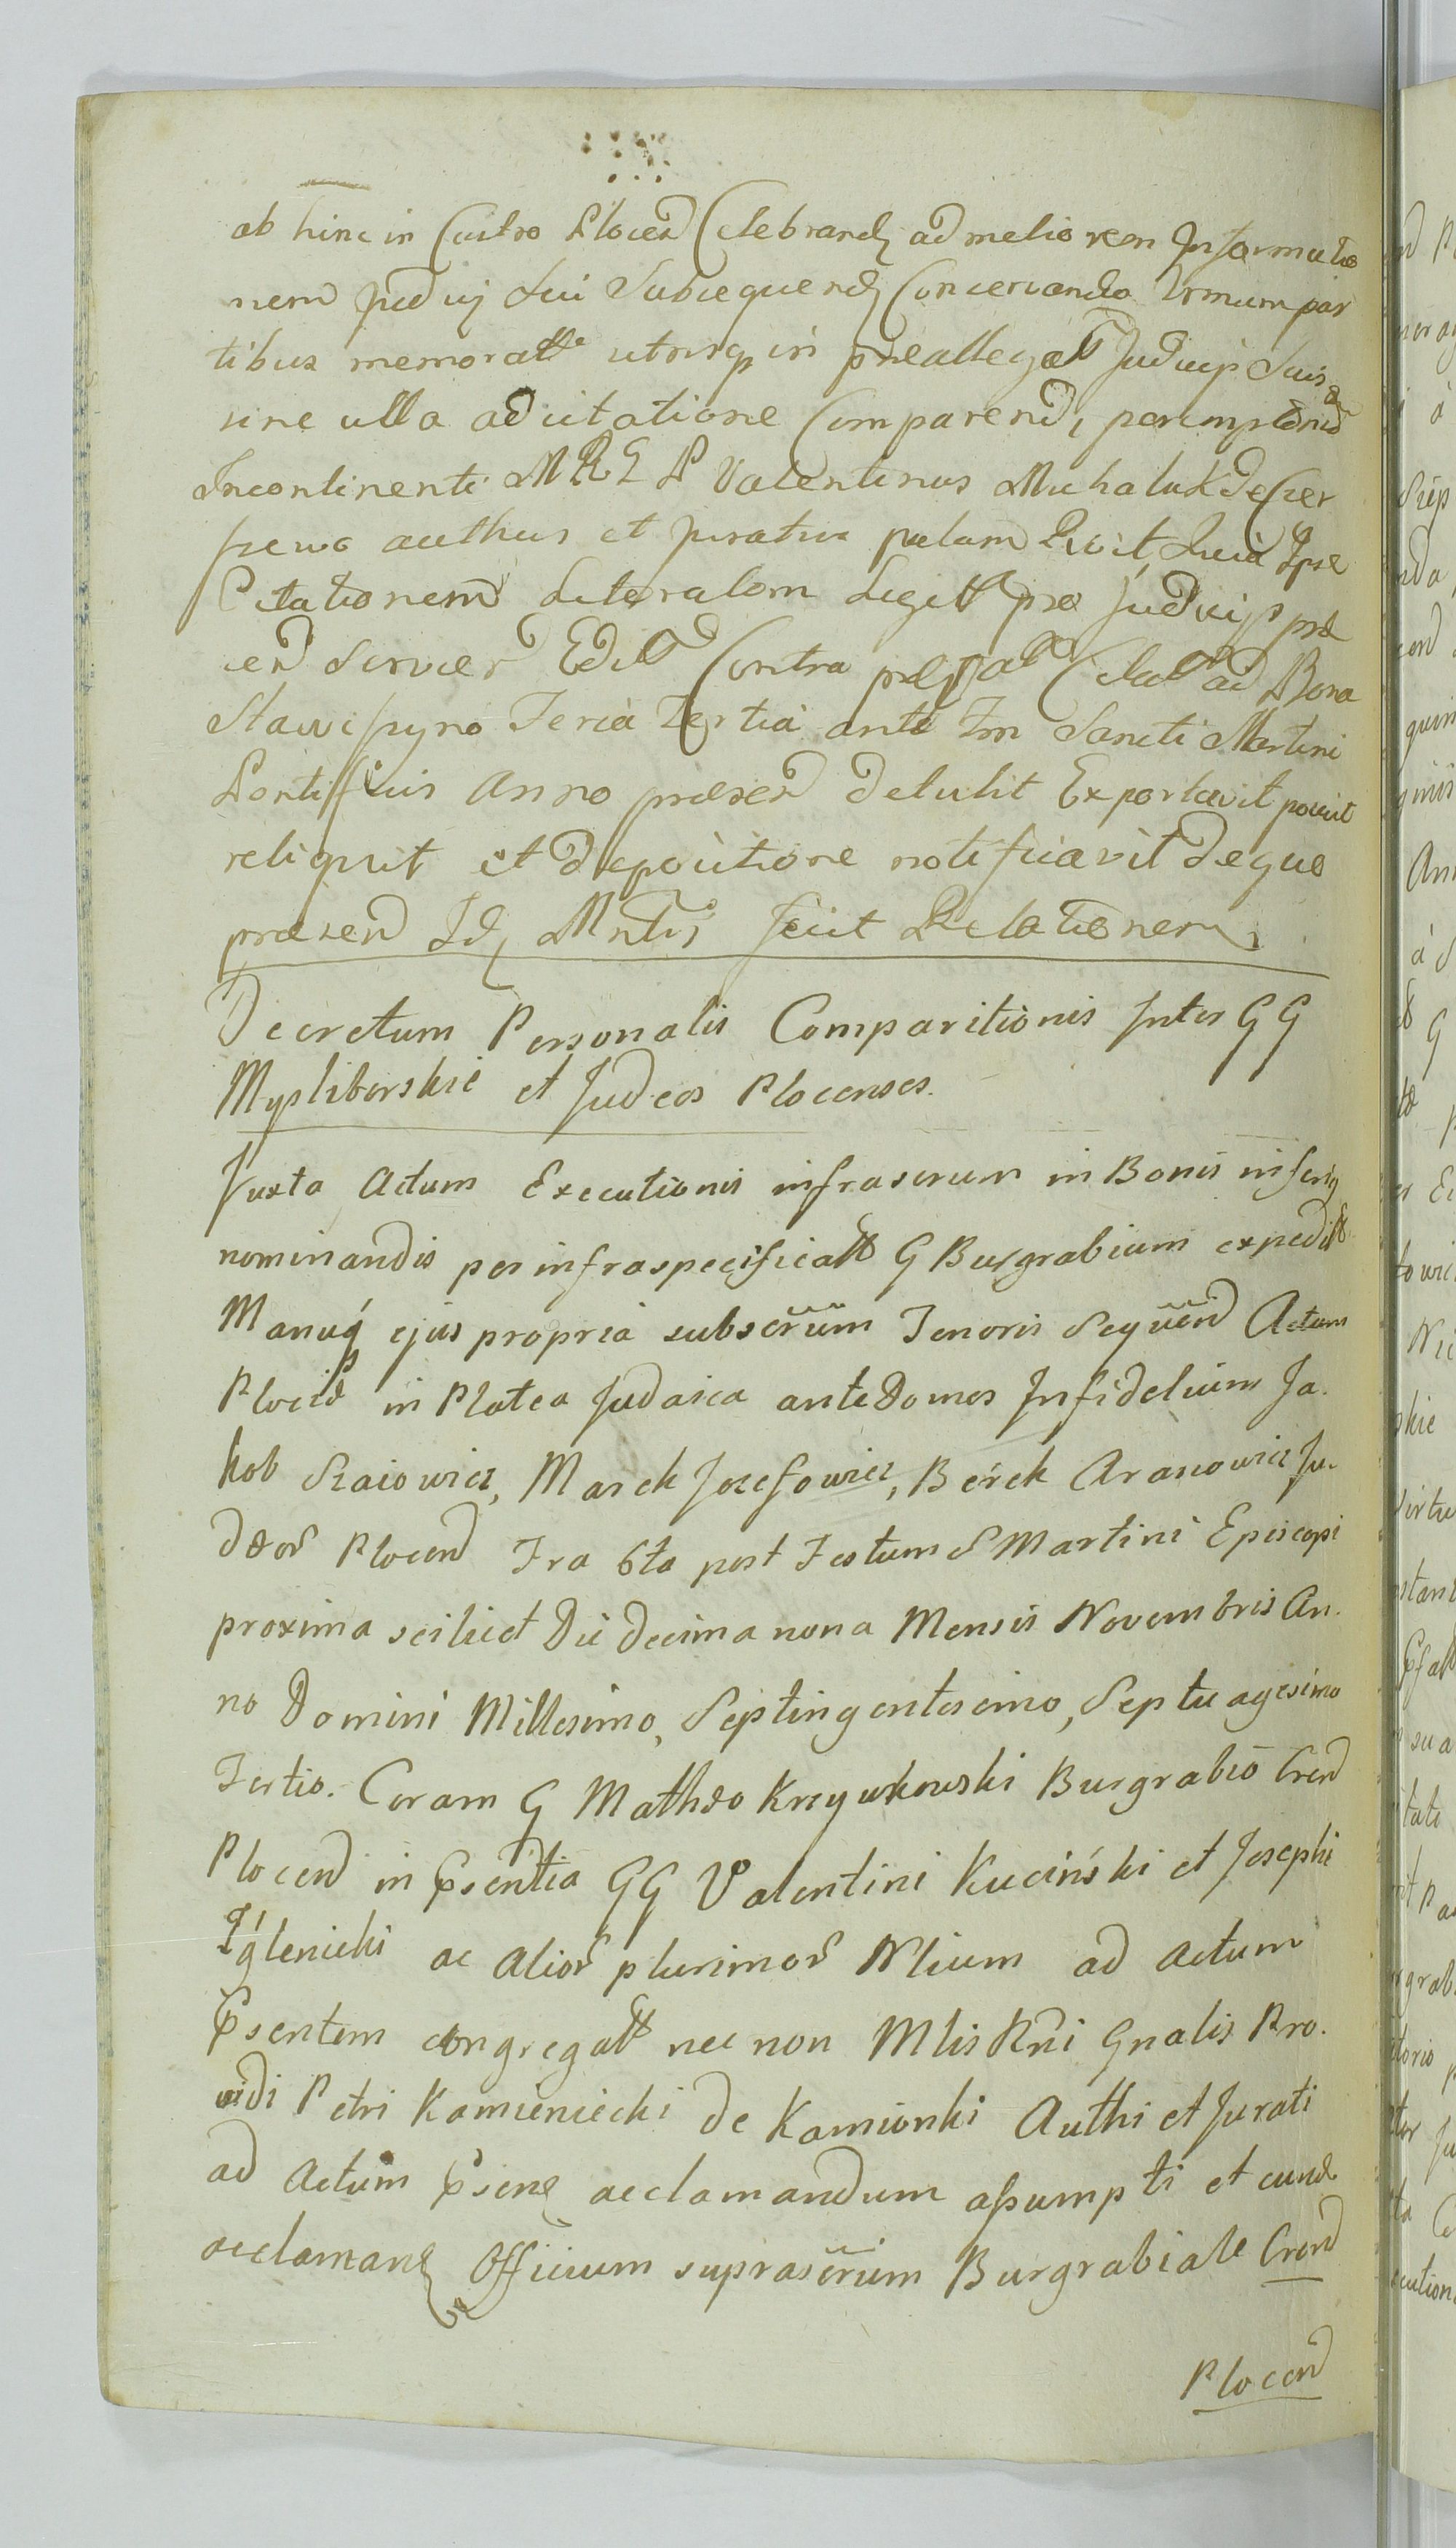 ab hinc in Castro Plocen Celebrand ad meliorem Informatio
nem Judicij Sui Subsequend Conservando Trmum par
tibus memoratt utrisq in preallegatt Judicijs Suis
sine ulla adcitatione Comparend, peremptorie
Incontinenti MRG P Valentinus Michaluk de Cier
szewo authus et juratus palam Rcvit, Quia Ipse
Citationem Literalem Legitt pro Judicijs prae
sen Editt Contra Citatt ad Bona
Feria Tertia ante Fm Sancti Martini
Pontificis Anno praesen detulit Exportavit posuit
reliquit et depositione notificavit de quo
praesen Id Mntr fecit Relationem
Decretum Personalis Comparitionis Inter GG
Mysliborskie et Judeos Plocenses.
Juxta Actum Executionis infrascrum in Bonis inferig
nominandis per infraspecificatt G Burgrabium expeditt
Manuq ejus propria subscrum Tenoris Sequen Actum
Plociae in Platea Judaica ante Domos Infidelium Ja.
kob Szaiowicz, Marek Jozefowicz, Berek Aranowicz Ju.
daeor Plocen Fra 6ta post Festum S Martini Episcopi
proxima scilicet Die decima nona Mensis Novembris An.
no Domini Millesimo, Septingentesimo, Septuagesimo
Tertio. Coram G Mathaeo Krzyukowski Burgrabio Cren
Plocen in Psentia GG Valentini Kuciński et Josephi
Iglenicki ac Alior plurimor Nlium ad actum
Psentem congregatt nec non Mlis Rni Gnalis Pro.
vidi Petri Kamieniecki de Kamionki Authi et Jurati
ad Actum Psen acclamandum assumpti et eund
acclaman Officium suprascrum Burgrabiale Cren
Plocen